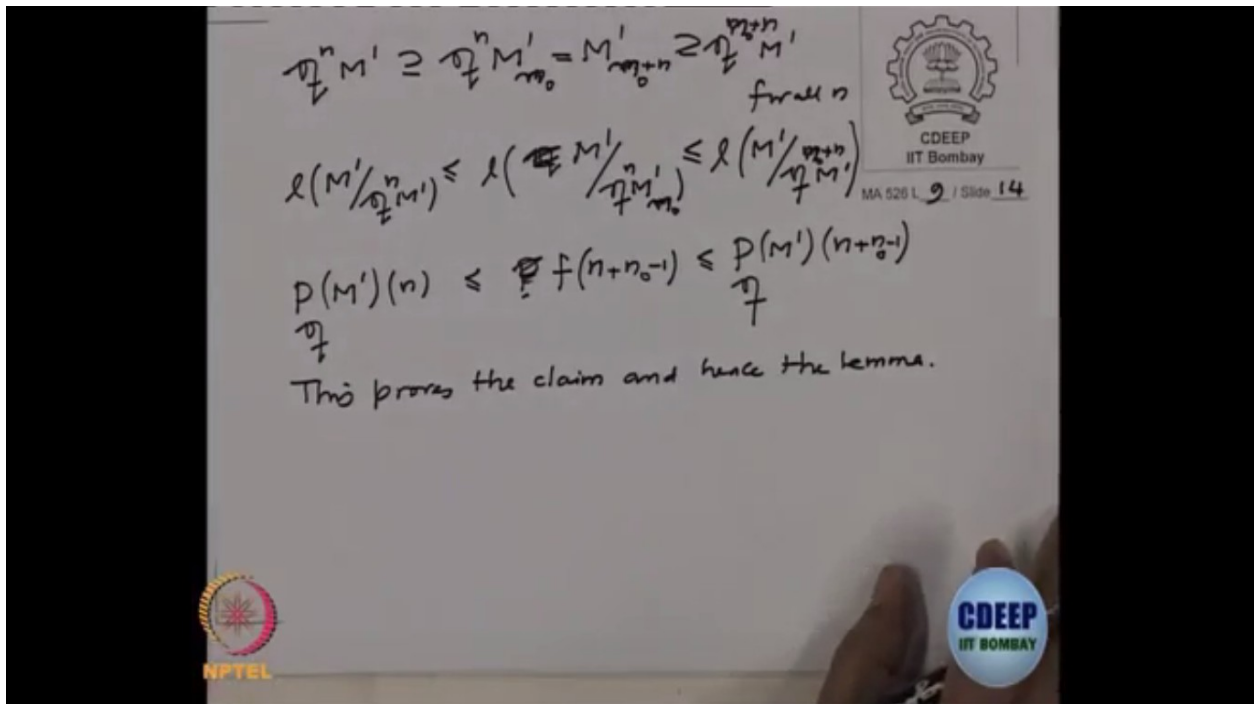 𝔮ⁿM' ⊇ 𝔮ⁿM'ₙ₀ = M'ₙ₀₊ₙ ⊇ 𝔮ⁿ⁰⁺ⁿM'
for all n
CDEEP
IIT Bombay
MA 526 L 9 / Slide 14
ℓ(M'/𝔮ⁿM') ≤ ℓ(M'/𝔮ⁿM'ₙ₀) ≤ ℓ(M'/𝔮ⁿ⁰⁺ⁿM')
P(M')(n) ≤ f(n+n₀-1) ≤ P(M')(n+n₀-1)
𝔮 𝔮
This proves the claim and hence the lemma.
NPTEL
CDEEP
IIT BOMBAY